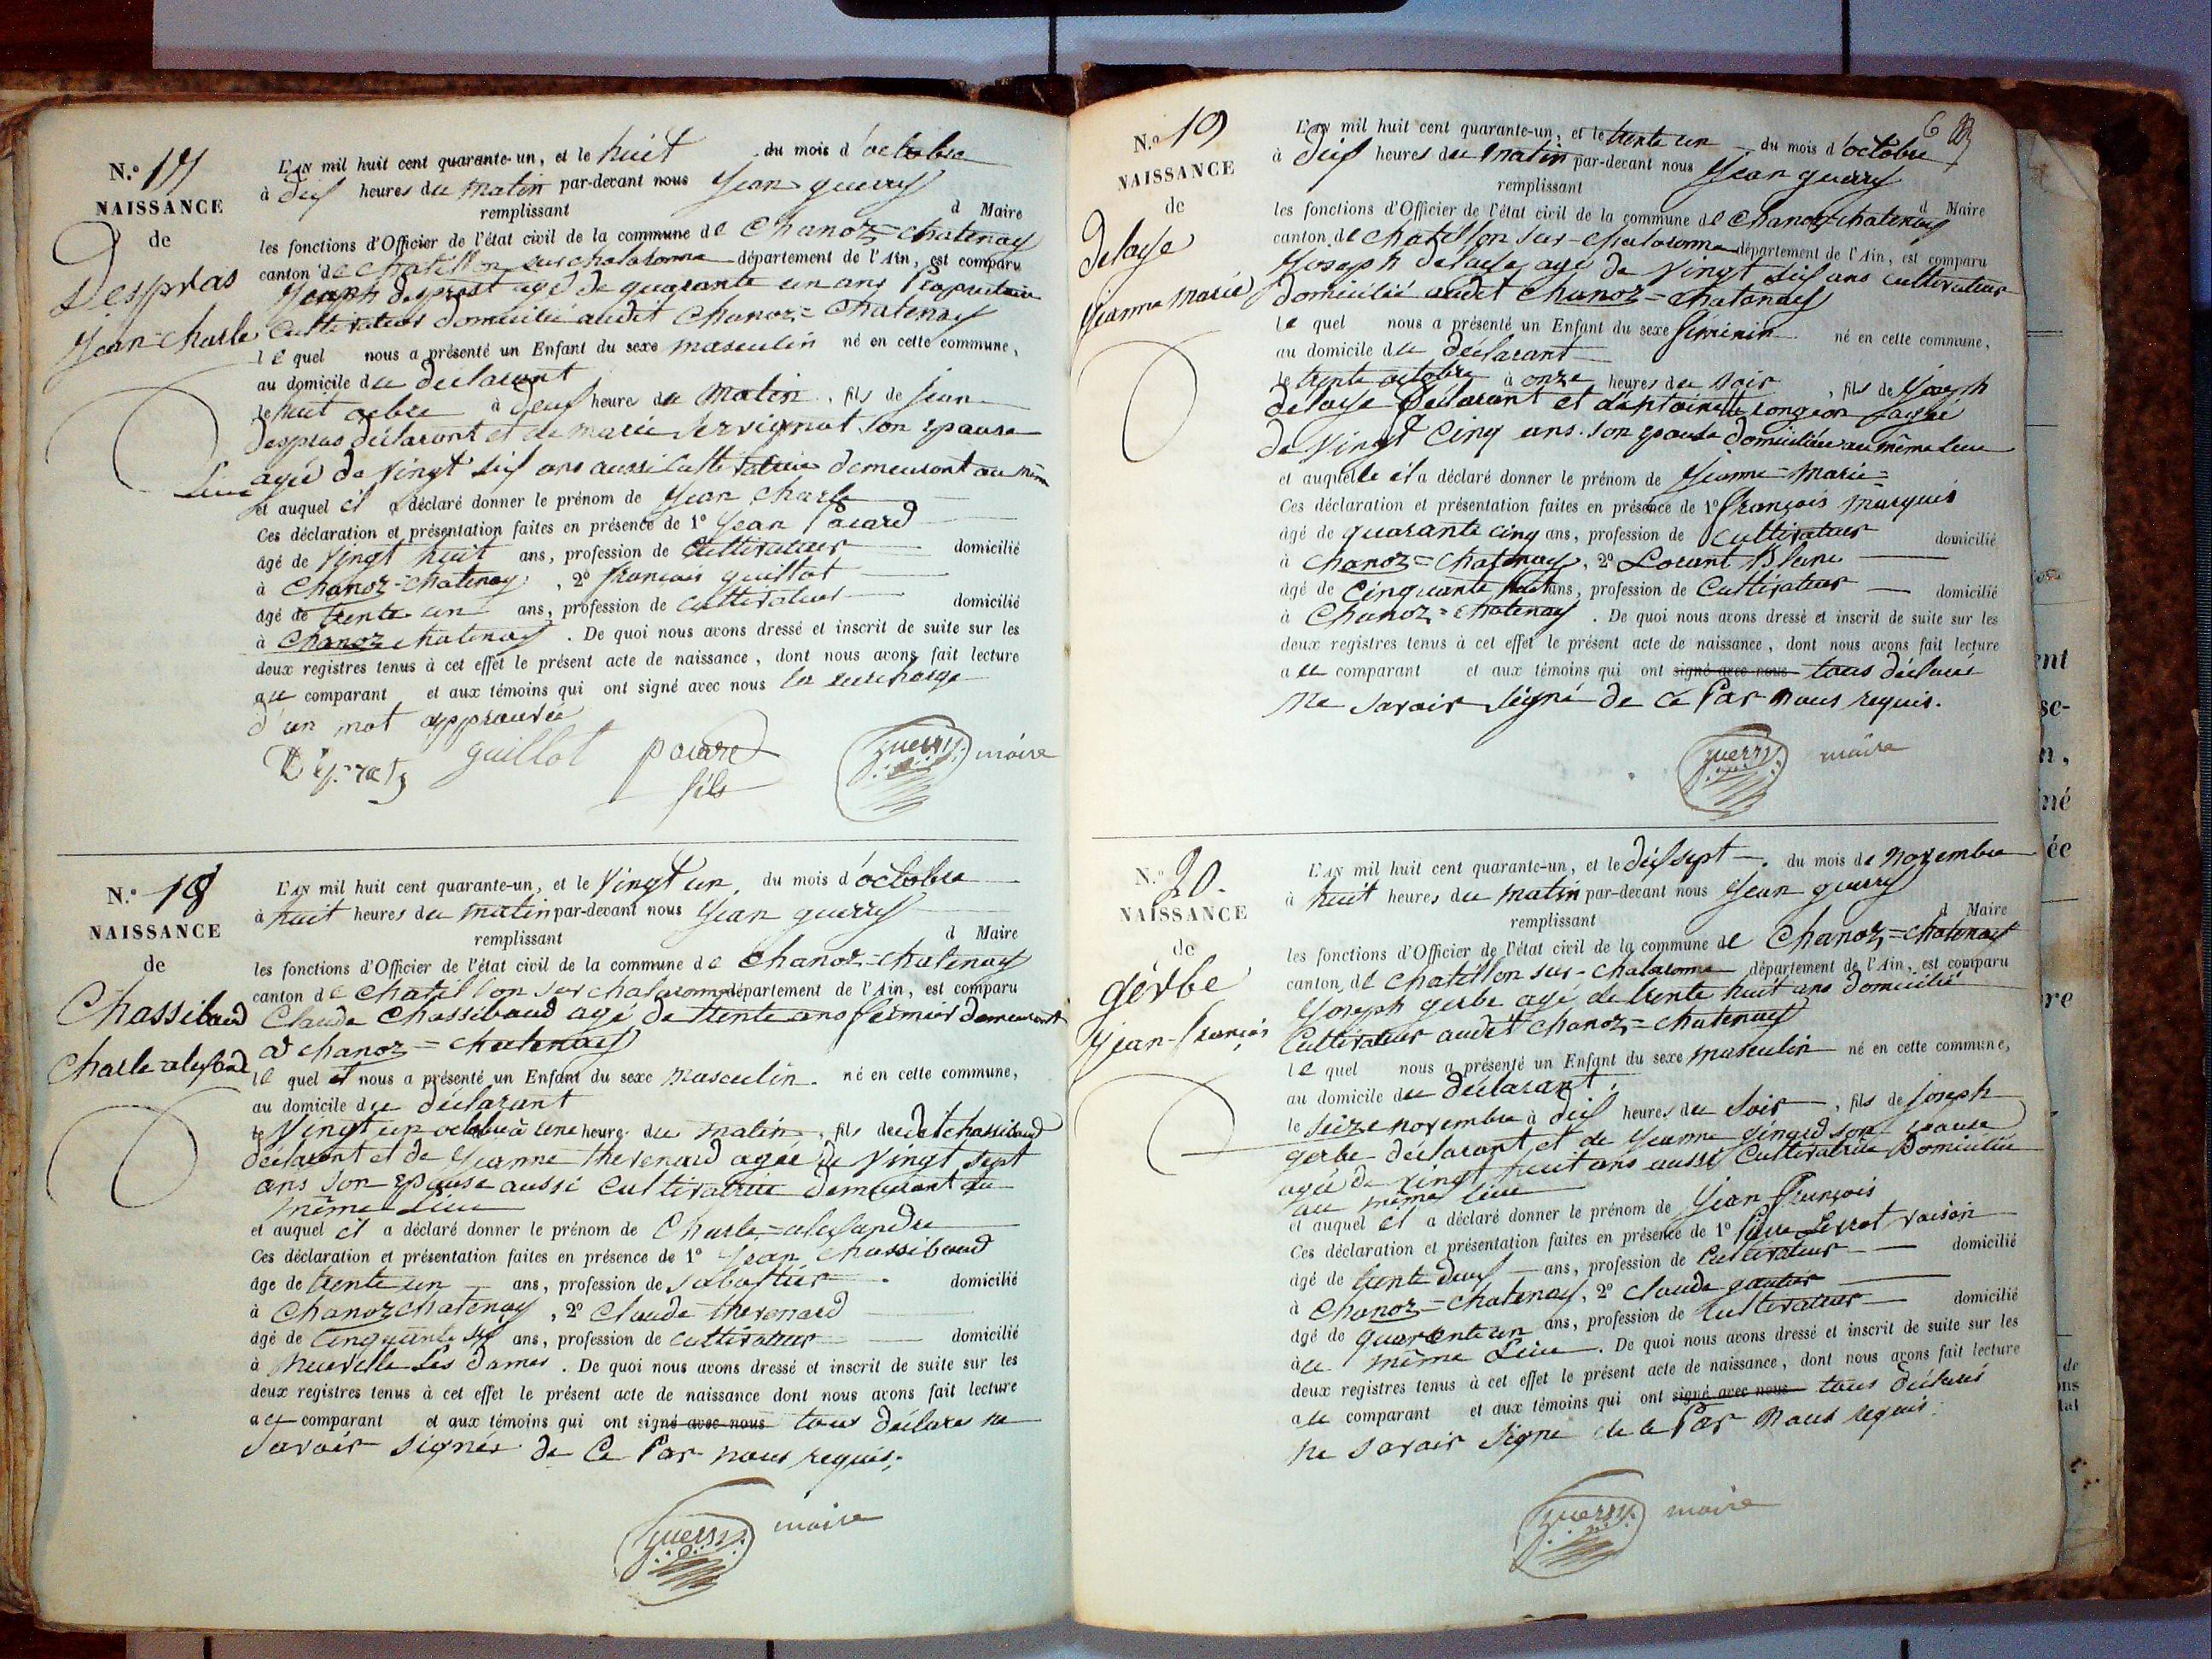 N.º 17
NAISSANCE
de
Despras
Jean-Charle
L'AN mil huit cent quarante-un, et le huit du mois d'octobre
à dix heures du matin par-devant nous Jean guerry
remplissant d Maire
les fonctions d'Officier de l'état civil de la commune de Chanoz=chatenay
canton de chatillon sur chalaronne département de l'Ain, est comparu
Joseph desprast agé de quarante un ans Propriétaire
Cultivateur domicilié audit Chanoz=Chatenay
le quel nous a présenté un Enfant du sexe masculin né en cette commune,
au domicile du déclarant
le huit octbre à deux heures du matin, fils de jean
despras déclarant et de marie servignat son epouse
agée de vingt six ans aussi cultivatrice demeurant au même
Lieu
et auquel il a déclaré donner le prénom de Jean Charle
Ces déclaration et présentation faites en présence de 1º Jean Pacard
âgé de vingt huit ans, profession de Cultivateur domicilié
à Chanoz-chatenay, 2º françois guillot
âgé de trente un ans, profession de cultivateur domicilié
à Chanoz chatenay. De quoi nous avons dressé et inscrit de suite sur les
deux registres tenus à cet effet le présent acte de naissance, dont nous avons fait lecture
au comparant et aux témoins qui ont signé avec nous la surcharge
d'un mot approuvée
guillot
fils
guerry maire
N.º 18
NAISSANCE
de
Chassibaud
Charle alexand
L'AN mil huit cent quarante-un, et le Vingt un, du mois d'octobre
à huit heures du matin par-devant nous Jean guerry
remplissant d Maire
les fonctions d'Officier de l'état civil de la commune de Chanoz-chatenay
canton de Chatillon sur chalaronne département de l'Ain, est comparu
Claude Chassibaud agé de trente ans fermier demeurant
à chanoz=chatenay
le quel nous a présenté un Enfant du sexe masculin. né en cette commune,
au domicile du déclarant
le Vingt un octobre à une heure du matin, fils dudit chassibaud
déclarant et de Jeanne thevenard agée de vingt sept
ans son epouse aussi cultivatrice demeurant au
même Lieu
et auquel il a déclaré donner le prénom de Charle=alexandre
Ces déclaration et présentation faites en présence de 1º Jean chassibaud
âgé de trente un ans, profession de sabottier domicilié
à Chanoz chatenay, 2º Claude thevenard
âgé de Cinquante six ans, profession de cultivateur domicilié
à Neuville Les dames. De quoi nous avons dressé et inscrit de suite sur les
deux registres tenus à cet effet le présent acte de naissance dont nous avons fait lecture
au comparant et aux témoins qui ont signé avec nous tous déclarés ne
savoir signés de Ce Par nous requis.
guerry maire
6
N.º 19
NAISSANCE
de
delaye
Jeanne Marie
L'AN mil huit cent quarante-un, et le trente un du mois d'octobre
à dix heures du matin par-devant nous Jean guerry
remplissant d Maire
les fonctions d'Officier de l'état civil de la commune de Chanoz=chatenay
canton de chatillon sur-chalaronne département de l'Ain, est comparu
Joseph delaye agé de Vingt six ans cultivateur
domicilié audit Chanoz=chatenay
le quel nous a présenté un Enfant du sexe féminin né en cette commune,
au domicile du déclarant
le trente octobre à onze heures du soir, fils de Joseph
delaye déclarant et d'antoinette rongeon agée
de Vingt Cinq ans son epouse domiciliée au même Lieu
et auquelle il a déclaré donner le prénom de Jeanne=Marie=
Ces déclaration et présentation faites en présence de 1º François marquis
âgé de quarante cinq ans, profession de cultivateur domicilié
à Chanoz=Chatenay, 2º Lorent Blanc
âgé de Cinquante huit ans, profession de Cultivateur domicilié
à Chanoz=chatenay. De quoi nous avons dressé et inscrit de suite sur les
deux registres tenus à cet effet le présent acte de naissance, dont nous avons fait lecture
au comparant et aux témoins qui ont signé avec nous tous déclaré
Ne savoir signé de Ce Par nous requis.
guerry maire
N.º 20.
NAISSANCE
de
gérbe
Jean-François
L'AN mil huit cent quarante-un, et le dix sept. du mois de novembre
à huit heures du matin par-devant nous Jean guerry
remplissant d Maire
les fonctions d'Officier de l'état civil de la commune de Chanoz=chatenay
canton de chatillon sur-chalaronne département de l'Ain, est comparu
Joseph gerbe agé de trente huit ans domicilié
Cultivateur audit chanoz=chatenay
le quel nous a présenté un Enfant du sexe masculin né en cette commune,
au domicile du déclarant,
le seize novembre à dix heures du soir, fils de joseph
gerbe déclarant et de Jeanne génard son epouse
agée de vingt huit ans aussi Cultivatrice Domiciliée
au même lieu
et auquel il a déclaré donner le prénom de Jean François
Ces déclaration et présentation faites en présence de 1º Pierre voisin
âgé de trente deux ans, profession de Cultivateur domicilié
à Chanoz=chatenay, 2º Claude gautier
âgé de quarente un ans, profession de Cultivateur domicilié
au même Lieu. De quoi nous avons dressé et inscrit de suite sur les
deux registres tenus à cet effet le présent acte de naissance, dont nous avons fait lecture
au comparant et aux témoins qui ont signé avec nous tous déclarés
ne savoir signe de ce Par nous requis.
guerry maire